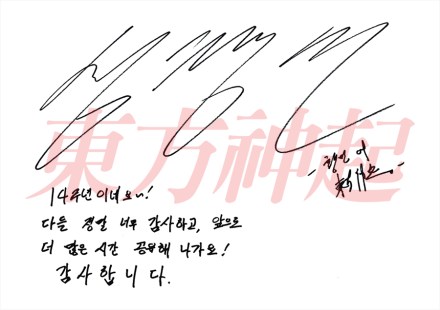 東方神起
14주년이네요~!
다들 정말 너무 감사하고, 앞으로
더 많은 시간 공유해 나가요!
감사합니다.